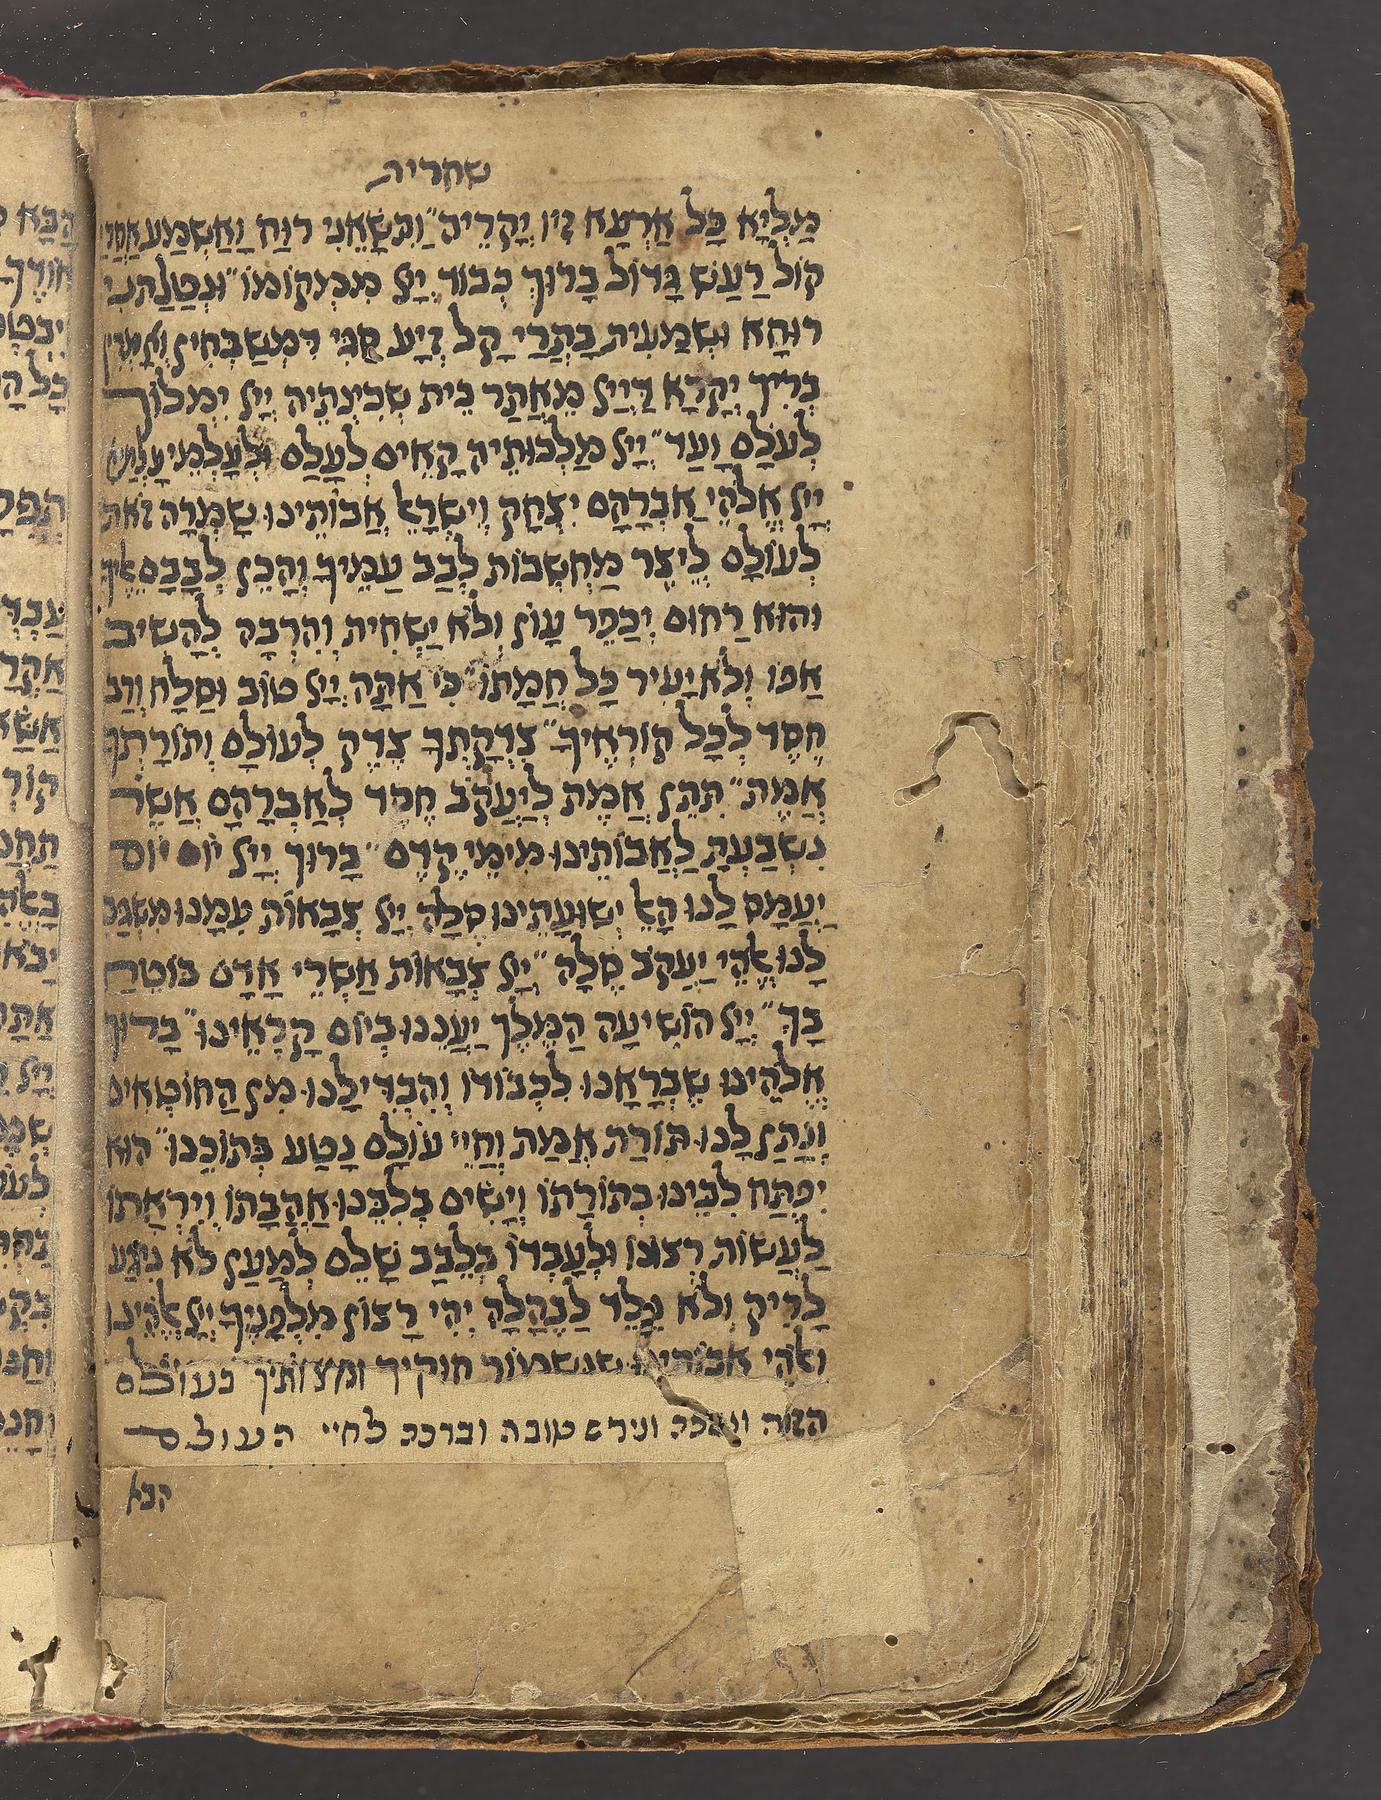 שחרית
מַלְיָא כָּל אַרְעָא זִיו יְקָרֵיהּ״ וַתִּשָּׂאֵנִי רוּחַ וָאֶשְׁמַע אַחֲרַי
קוֹל רַעַשׁ גָּדוֹל בָּרוּךְ כְּבוֹד יְיָ מִמְּקוֹמוֹ״ וּנְטָלַתְנִי
רוּחָא וּשְׁמַעִית בַּתְרַי קָל זִיעַ סַגִּי דִּמְשַׁבְּחִין וְאָמְרִין
בְּרִיךְ יְקָרָא דַיְיָ מֵאֲתַר בֵּית שְׁכִינְתֵּיהּ יְיָ יִמְלוֹךְ
לְעֹלָם וָעֶד״ יְיָ מַלְכוּתֵיהּ קָאֵים לְעָלַם וּלְעָלְמֵי עָלְמַיָּא
יְיָ אֱלֹהֵי אַבְרָהָם יִצְחָק וְיִשְׂרָאֵל אֲבוֹתֵינוּ שָׁמְרָה זֹאת
לְעוֹלָם לְיֵצֶר מַחְשְׁבוֹת לְבַב עַמֶּיךָ וְהָכֵן לְבָבָם אֵלֶיךָ
וְהוּא רַחוּם יְכַפֵּר עָוֹן וְלֹא יַשְׁחִית וְהִרְבָּה לְהָשִׁיב
אַפּוֹ וְלֹא יָעִיר כָּל חֲמָתוֹ״ כִּי אַתָּה יְיָ טוֹב וְסַלָּח וְרַב
חֶסֶד לְכָל קוֹרְאֶיךָ״ צִדְקָתְךָ צֶדֶק לְעוֹלָם וְתוֹרָתְךָ
אֱמֶת״ תִּתֵּן אֱמֶת לְיַעֲקֹב חֶסֶד לְאַבְרָהָם אֲשֶׁר
נִשְׁבַּעְתָּ לַאֲבוֹתֵינוּ מִימֵי קֶדֶם״ בָּרוּךְ יְיָ יוֹם יוֹם
יַעֲמָס לָנוּ הָאֵל יְשׁוּעָתֵינוּ סֶלָה יְיָ צְבָאוֹת עִמָּנוּ מִשְׂגָּב
לָנוּ אֱלֹהֵי יַעֲקֹב סֶלָה״ יְיָ צְבָאוֹת אַשְׁרֵי אָדָם בּוֹטֵחַ
בָּךְ״ יְיָ הוֹשִׁיעָה הַמֶּלֶךְ יַעֲנֵנוּ בְיוֹם קָרְאֵינוּ״ בָּרוּךְ
אֱלֹהֵינוּ שֶׁבְּרָאָנוּ לִכְבוֹדוֹ וְהִבְדִּילָנוּ מִן הַחוֹטְאִים
וְנָתַן לָנוּ תּוֹרַת אֱמֶת וְחַיֵּי עוֹלָם נָטַע בְּתוֹכֵנוּ״ הוּא
יִפְתַּח לִבֵּינוּ בְּתוֹרָתוֹ וְיָשִׂים בְּלִבֵּנוּ אַהֲבָתוֹ וְיִרְאָתוֹ
לַעֲשׂוֹת רְצוֹנוֹ וּלְעָבְדוֹ בְּלֵבָב שָׁלֵם לְמַעַן לֹא נִיגַע
לָרִיק וְלֹא נֵלֵד לַבֶּהָלָה יְהִי רָצוֹן מִלְּפָנֶיךָ יְיָ אֱלֹהֵינוּ
ואלהי אבותינו שנשמור חוקיך ומצותיך בעולם
הזה ונזכה ונירש טובה וברכה לחיי העולם
הבא